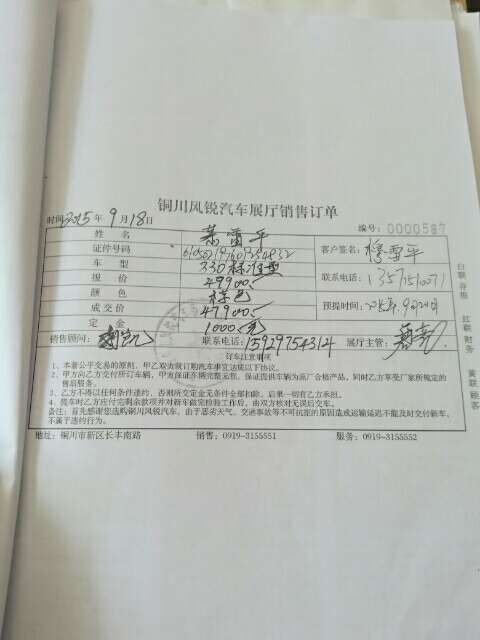 铜川风锐汽车展厅销售订单
时间2015年9月18日
编号:0000587
姓名
证件号码
客户签名:
车型 330标准型
联系电话:
报价 49900.
颜色 棕色
预提时间:
成交价 47900.
定金 1000元
销售顾问:
联系电话:15929754314
展厅主管:
订车注意事项
1、本着公平交易的原则,甲乙双方就订购汽车事宜达成以下协议。
2、甲方向乙方交付所订车辆,甲方保证车辆完整无损,保证提供车辆为原厂合格产品,同时乙方享受厂家所规定的
售后服务。
3、乙方不得以任何条件违约,否则所交定金无条件全部扣除,后果一切有乙方承担。
4、提车时乙方应付完剩余款项并对新车做完检验工作后,由双方核对无误后交车。
备注:首先感谢您选购铜川风锐汽车,由于恶劣天气、交通事故等不可抗拒的原因造成运输延迟不能及时交付新车,
不属于违约行为。
地址:铜川市新区长丰南路
销售:0919-3155551
服务:0919-3155552
白联存根
红联财务
黄联顾客